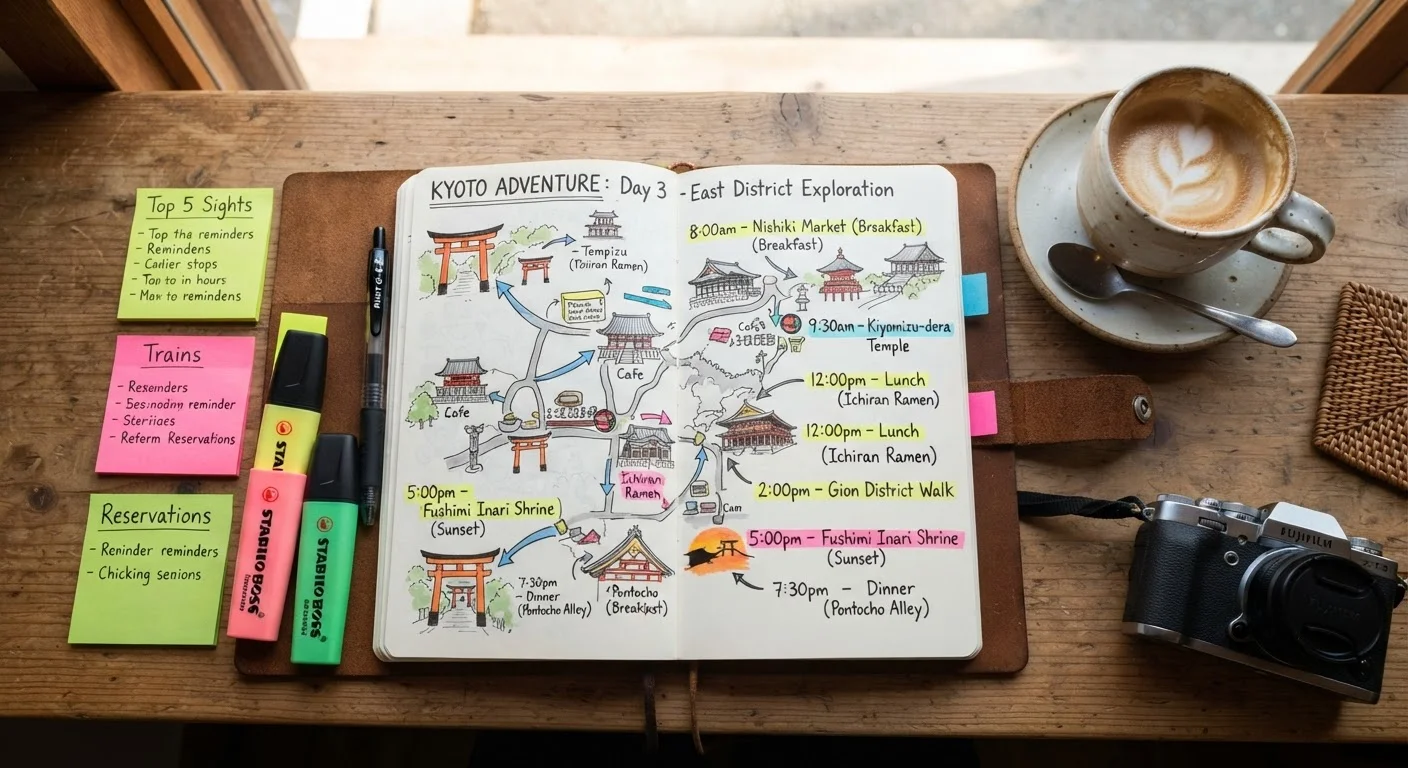 KYOTO ADVENTURE: Day 3 - East District Exploration
Top 5 Sights
- Top tha reminders
- Remindens
- Carlier stops
- Tanto in hours
- Man to remindens
Trains
- Resenders
- reminder
- Reform Reservations
Reservations
- Reninder reminders
- Chicking senions
STABILO BOSS
STABILO BOSS
- Tempizu
Ramen)
Cafe
Cafe
Ramen
5:00pm –
Fushimi Inari Shrine
(Sunset)
7:30pm
- Dinner
(Pontocho Alley)
Pontocho
(Breakfast)
8:00am – Nishiki Market (Breakfast)
(Breakfast)
9:30am – Kiyomizu-dera
Temple
12:00pm – Lunch
(Ichiran Ramen)
12:00pm – Lunch
(Ichiran Ramen)
2:00pm – Gion District Walk
Cam
5:00pm – Fushimi Inari Shrine
(Sunset)
7:30pm – Dinner
(Pontocho Alley)
FUJIFILM